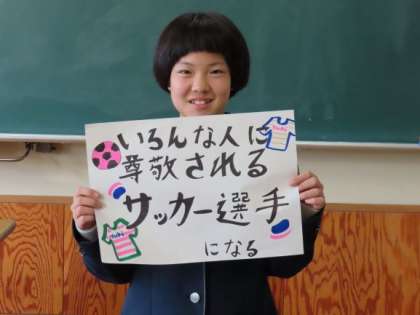 いろんな人に
尊敬される
サッカー選手
になる